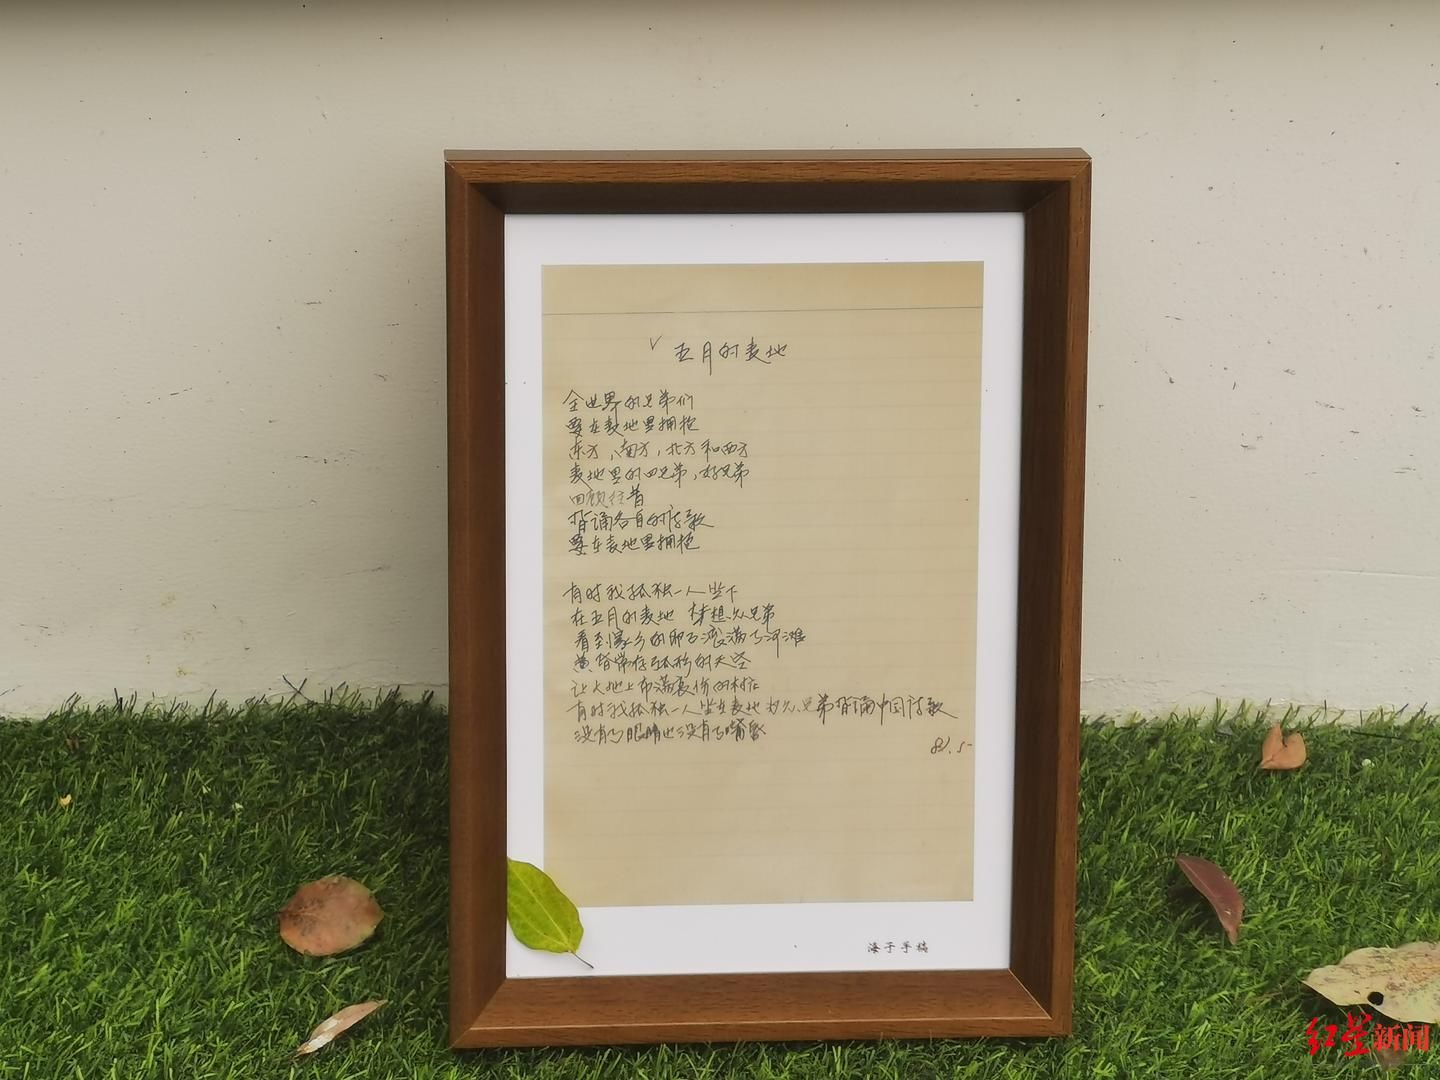 五月的麦地
全世界的兄弟们
要在麦地里拥抱
东方，南方，北方和西方
麦地里的四兄弟，好兄弟
回顾往昔
背诵各自的诗歌
要在麦地里拥抱
有时我孤独一人坐下
在五月的麦地 梦想众兄弟
看到家乡的卵石滚满了河滩
黄昏常存弧形的天空
让大地上布满哀伤的村庄
有时我孤独一人坐在麦地 为众兄弟背诵中国诗歌
没有了眼睛也没有了嘴唇
海子手稿
红星新闻